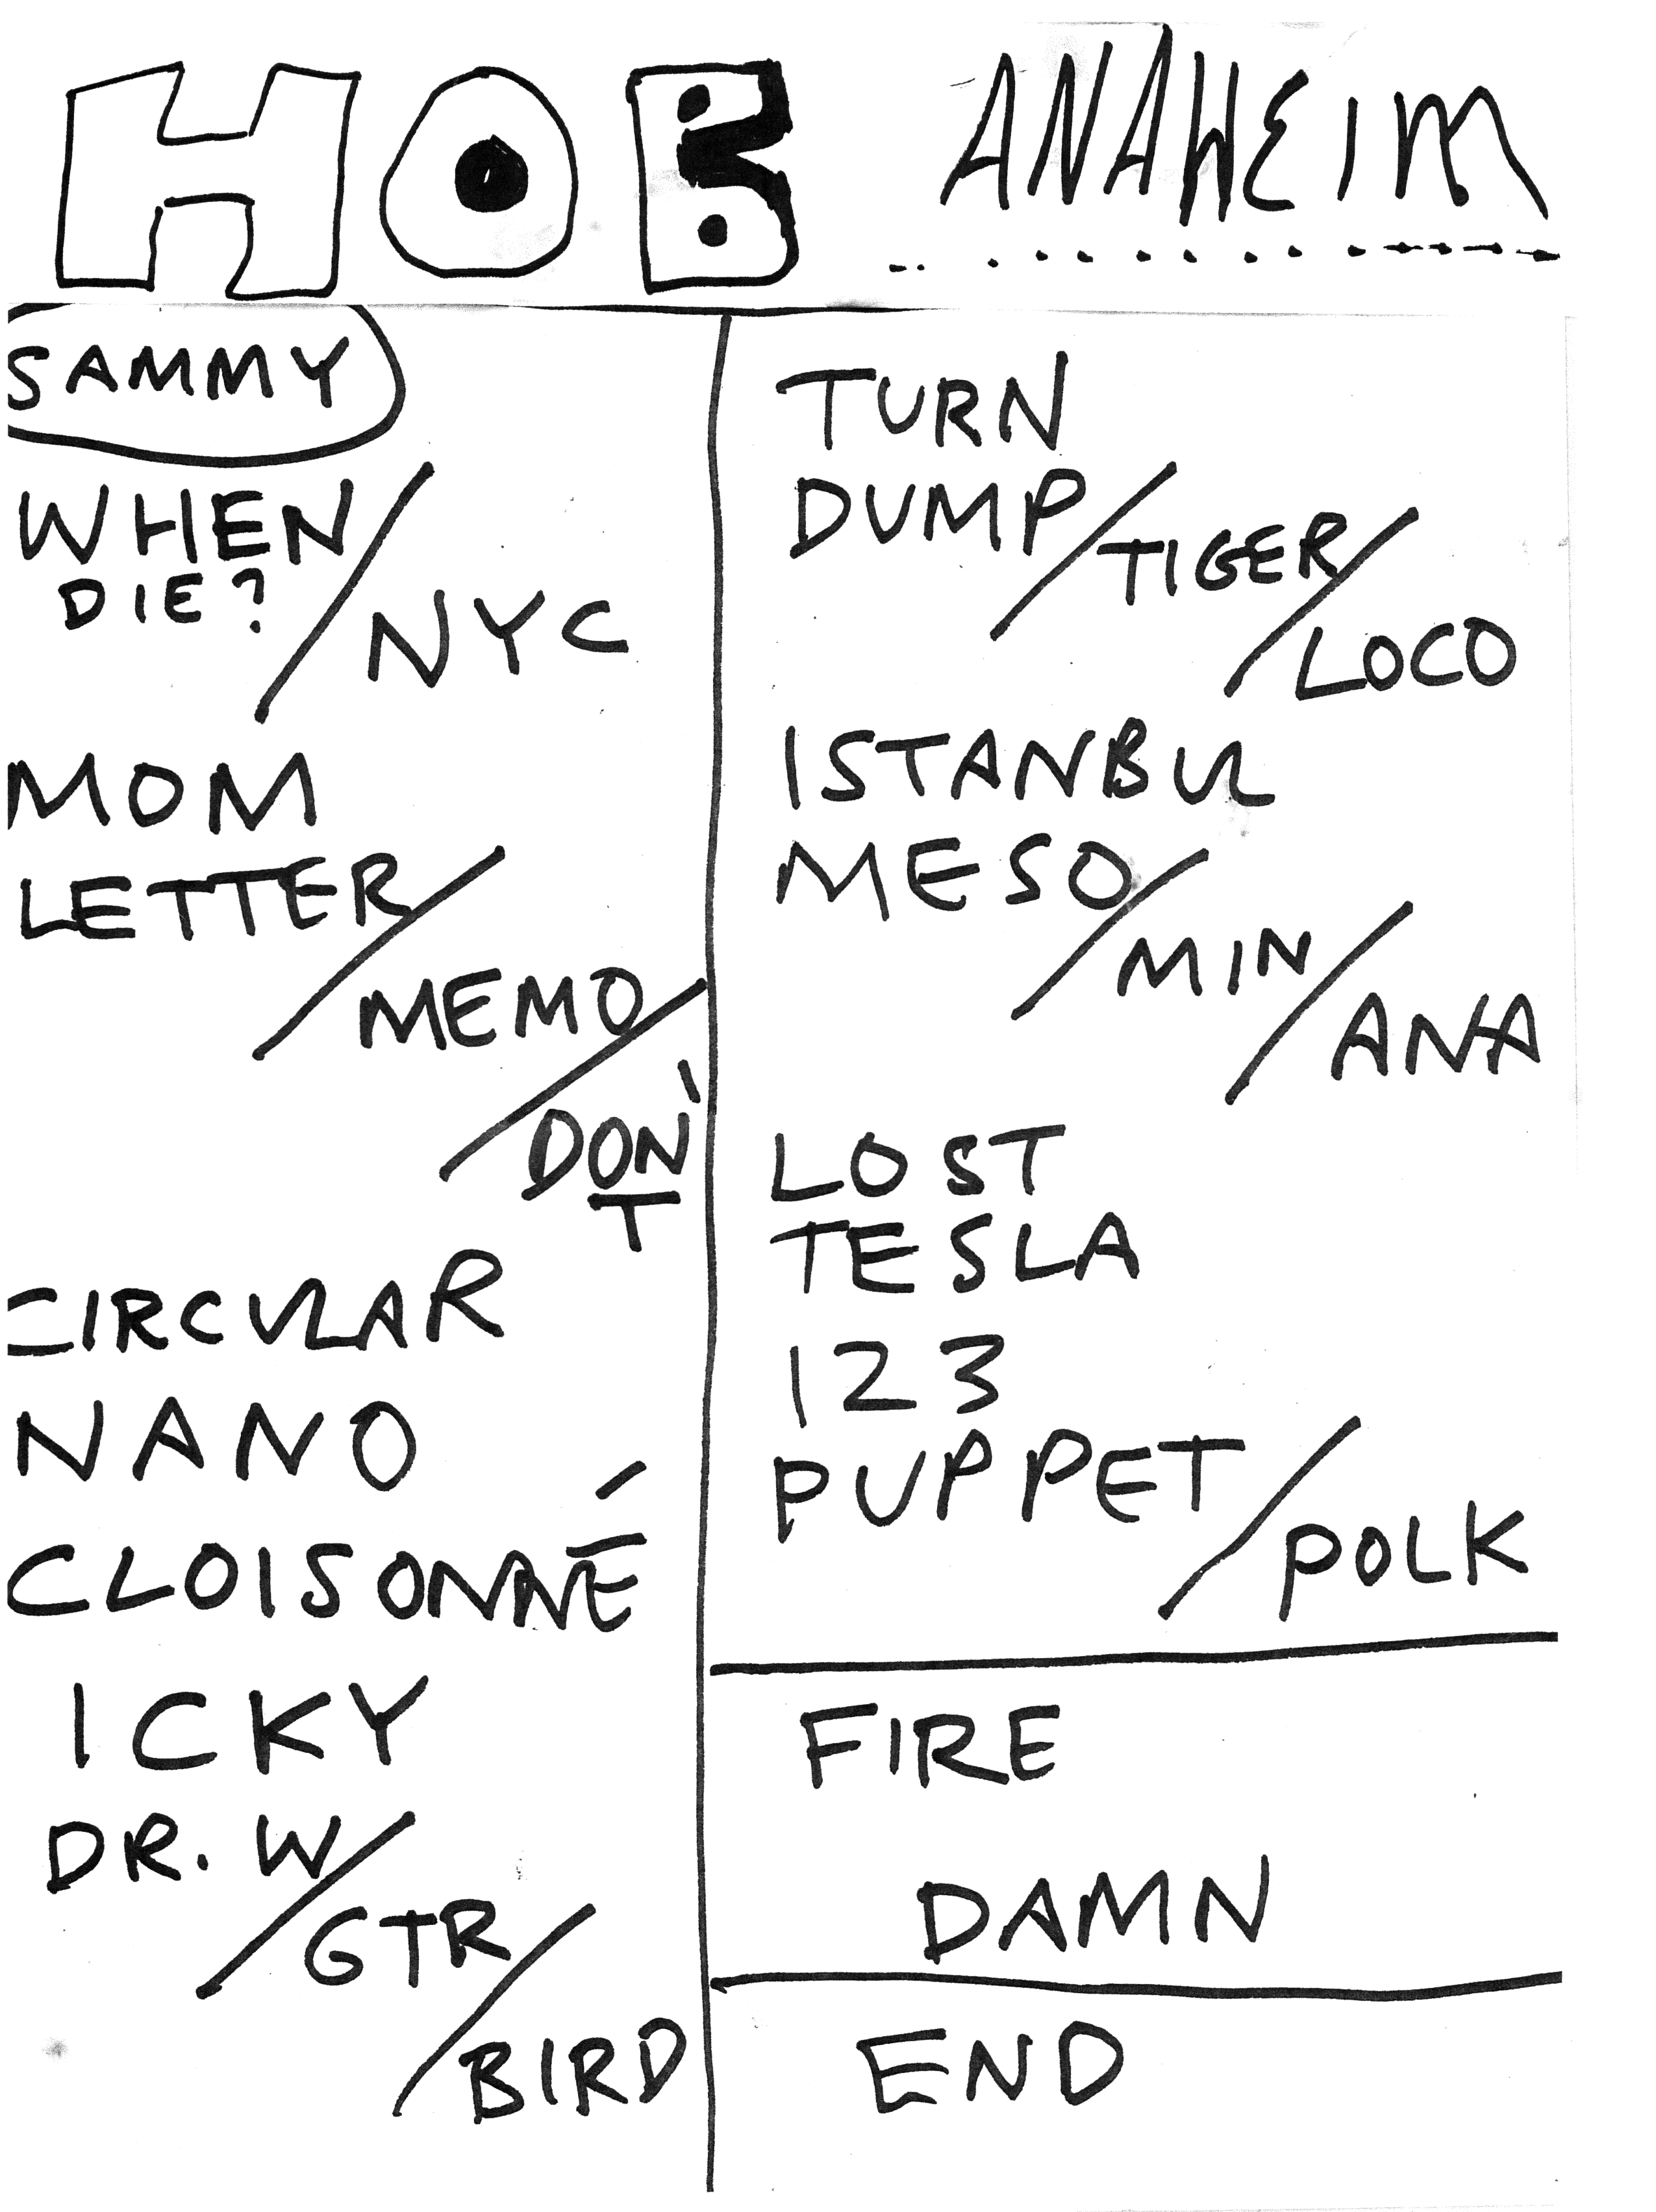 HOB ANAHEIM
SAMMY
WHEN/
DIE?
NYC
MOM
LETTER/
MEMO/
DON'
T
CIRCULAR
NANO
CLOISONNÉ
ICKY
DR. W/
GTR/
BIRD
TURN
DUMP/
TIGER/
LOCO
ISTANBUL
MESO/
MIN/
ANA
LOST
TESLA
123
PUPPET/
POLK
FIRE
DAMN
END